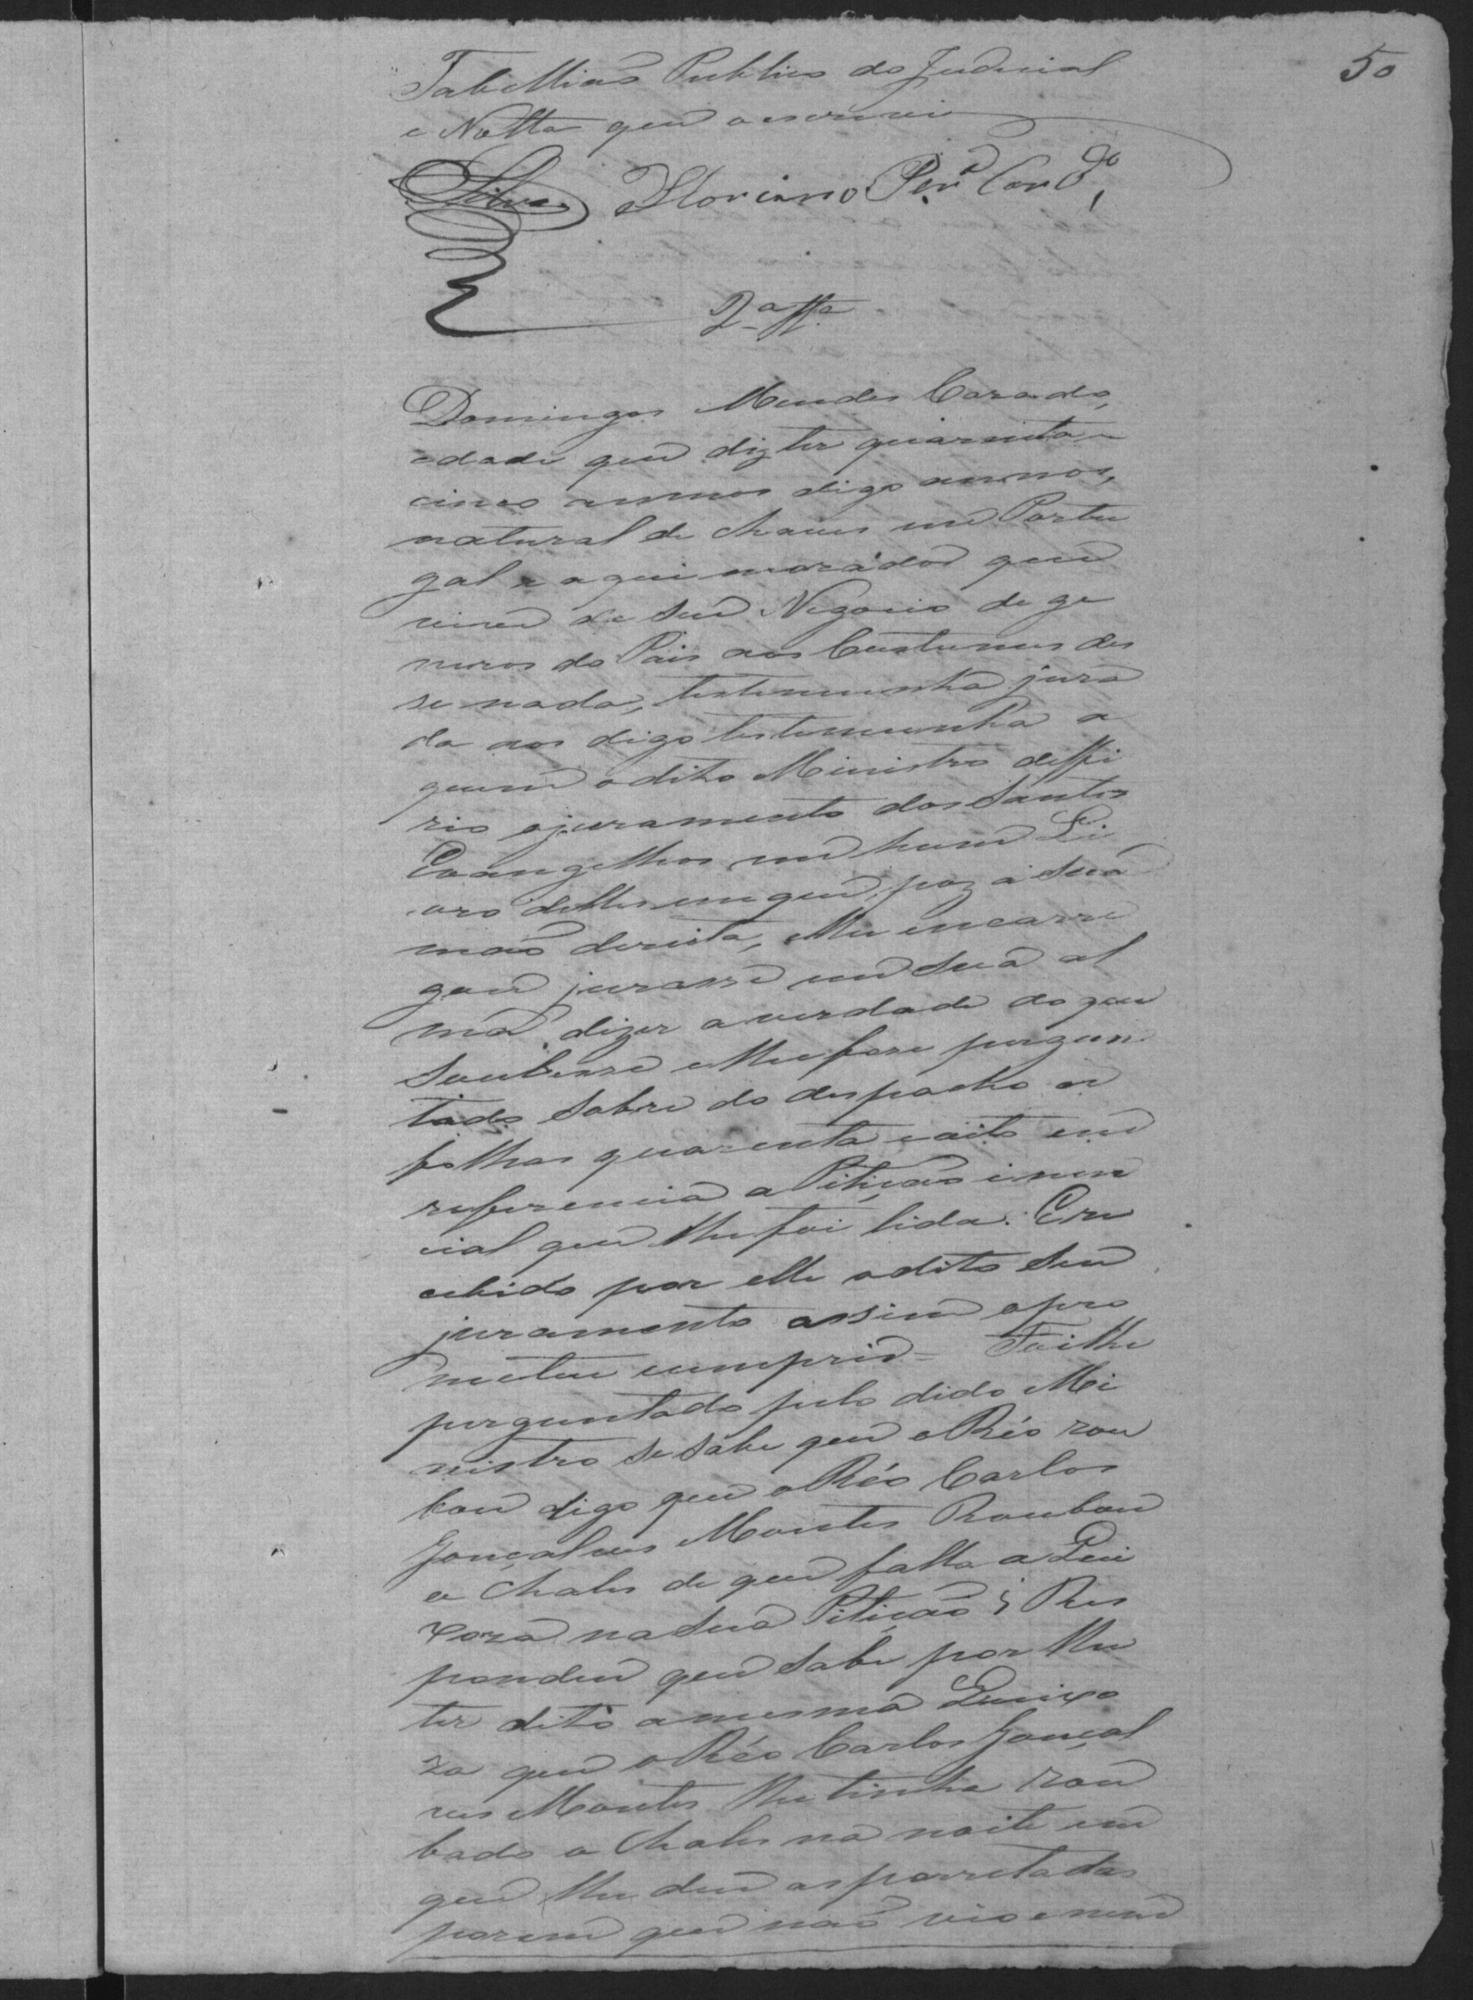 50
Tabellião Publico do Judicial
e Notta que o escrevi
Silva Floriano Per.ª Cord.º
2ª tt.ª
Domingos Mendes
idade que diz ter quarenta e
cinco annos digo annos,
natural de Chaves em Portu
gal e aqui morador que
vive de seu Negocio de ge
neros do Pais aos Custumes dis
se nada, testemunha jura
da aos digo testemunha a
quem o dito Ministro deffi
rio o juramento dos Santos
Evangelhos em hum Li
vro delles em que poz a sua
mão direita, elhe encarre
gou jurasse em sua al
ma dizer a verdade do que
Soubesse elhe fose pergun
tado Sobre do despacho a
folhas quarenta e oito em
referencia a Petição inni
cial que lhe foi lida. Ere
cebido por elle o dito seu
juramento assim o pro
meteu cumprir = Foilhe
perguntado pelo dido Mi
nistro se sabe que o Réo rou
bou digo que o Réo Carlos
Gonçalves Montes Roubou
o Chales de que falla a Quei
xoza na sua Petição; Res
pondeu que sabe por lhe
ter dito a mesma Queixo
za que o Réo Carlos Gonçal
ves Montes lhe tinha rou
bado o Chales na noite em
que lhe deu as porretadas
porem que não vio e nem